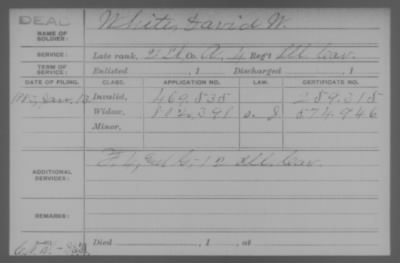 DEAL
NAME OF SOLDIER: White, David W.
SERVICE: Late rank, Co. A, 4 Reg't Ill Cav.
TERM OF SERVICE: Enlisted , 1 Discharged , 1
DATE OF FILING. CLASS. APPLICATION NO. LAW. CERTIFICATE NO.
Jan. 13 Invalid, 469.838 289.318
Widow, 574.946
Minor,
ADDITIONAL SERVICES: F, 12 Ill. Cav.
REMARKS:
Died , 1 , at